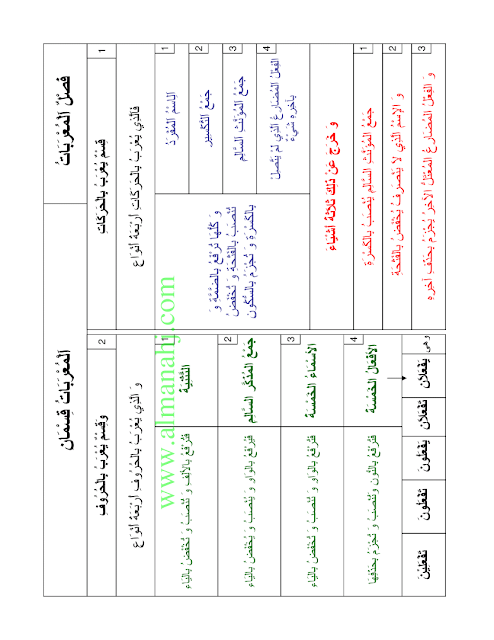 فَصْلٌ الْمُعْرَبَاتُ
الْمُعْرَبَاتُ قِسْمَانِ
1
قِسْمٌ يُعْرَبُ بِالْحَرَكَاتِ
2
وَقِسْمٌ يُعْرَبُ بِالْحُرُوفِ
فَالَّذِي يُعْرَبُ بِالْحَرَكَاتِ أَرْبَعَةُ أَنْوَاعٍ
وَ الَّذِي يُعْرَبُ بِالْحُرُوفِ أَرْبَعَةُ أَنْوَاعٍ
1
الاِسْمُ الْمُفْرَدُ
2
جَمْعُ التَّكْسِيرِ
3
جَمْعُ الْمُؤَنَّثِ السَّالِمِ
4
الْفِعْلُ الْمُضَارِعُ الَّذِي لَمْ يَتَّصِلْ
بِآخِرِهِ شَيْءٌ
وَ كُلُّهَا تُرْفَعُ بِالضَّمَّةِ وَ
تُنْصَبُ بِالْفَتْحَةِ وَ تُخْفَضُ
بِالْكَسْرَةِ وَ تُجْزَمُ بِالسُّكُونِ
وَ خَرَجَ عَنْ ذَلِكَ ثَلَاثَةُ أَشْيَاءَ
1
جَمْعُ الْمُؤَنَّثِ السَّالِمِ يُنْصَبُ بِالْكَسْرَةِ
2
وَ الاِسْمُ الَّذِي لَا يَنْصَرِفُ يُخْفَضُ بِالْفَتْحَةِ
3
وَ الْفِعْلُ الْمُضَارِعُ الْمُعْتَلُّ الآخِرِ يُجْزَمُ بِحَذْفِ آخِرِهِ
1
التَّثْنِيَةُ
فَتُرْفَعُ بِالأَلِفِ وَ تُنْصَبُ وَ تُخْفَضُ بِالْيَاءِ
2
جَمْعُ الْمُذَكَّرِ السَّالِمِ
فَيُرْفَعُ بِالْوَاوِ وَ يُنْصَبُ وَ يُخْفَضُ بِالْيَاءِ
3
الأَسْمَاءُ الْخَمْسَةُ
فَتُرْفَعُ بِالْوَاوِ وَ تُنْصَبُ وَ تُخْفَضُ بِالْيَاءِ
4
الأَفْعَالُ الْخَمْسَةُ
فَتُرْفَعُ بِالنُّونِ وَتُنْصَبُ وَ تُجْزَمُ بِحَذْفِهَا
وهى
يَفْعَلَانِ
تَفْعَلَانِ
يَفْعَلُونَ
تَفْعَلُونَ
تَفْعَلِينَ
www.almanahj.com